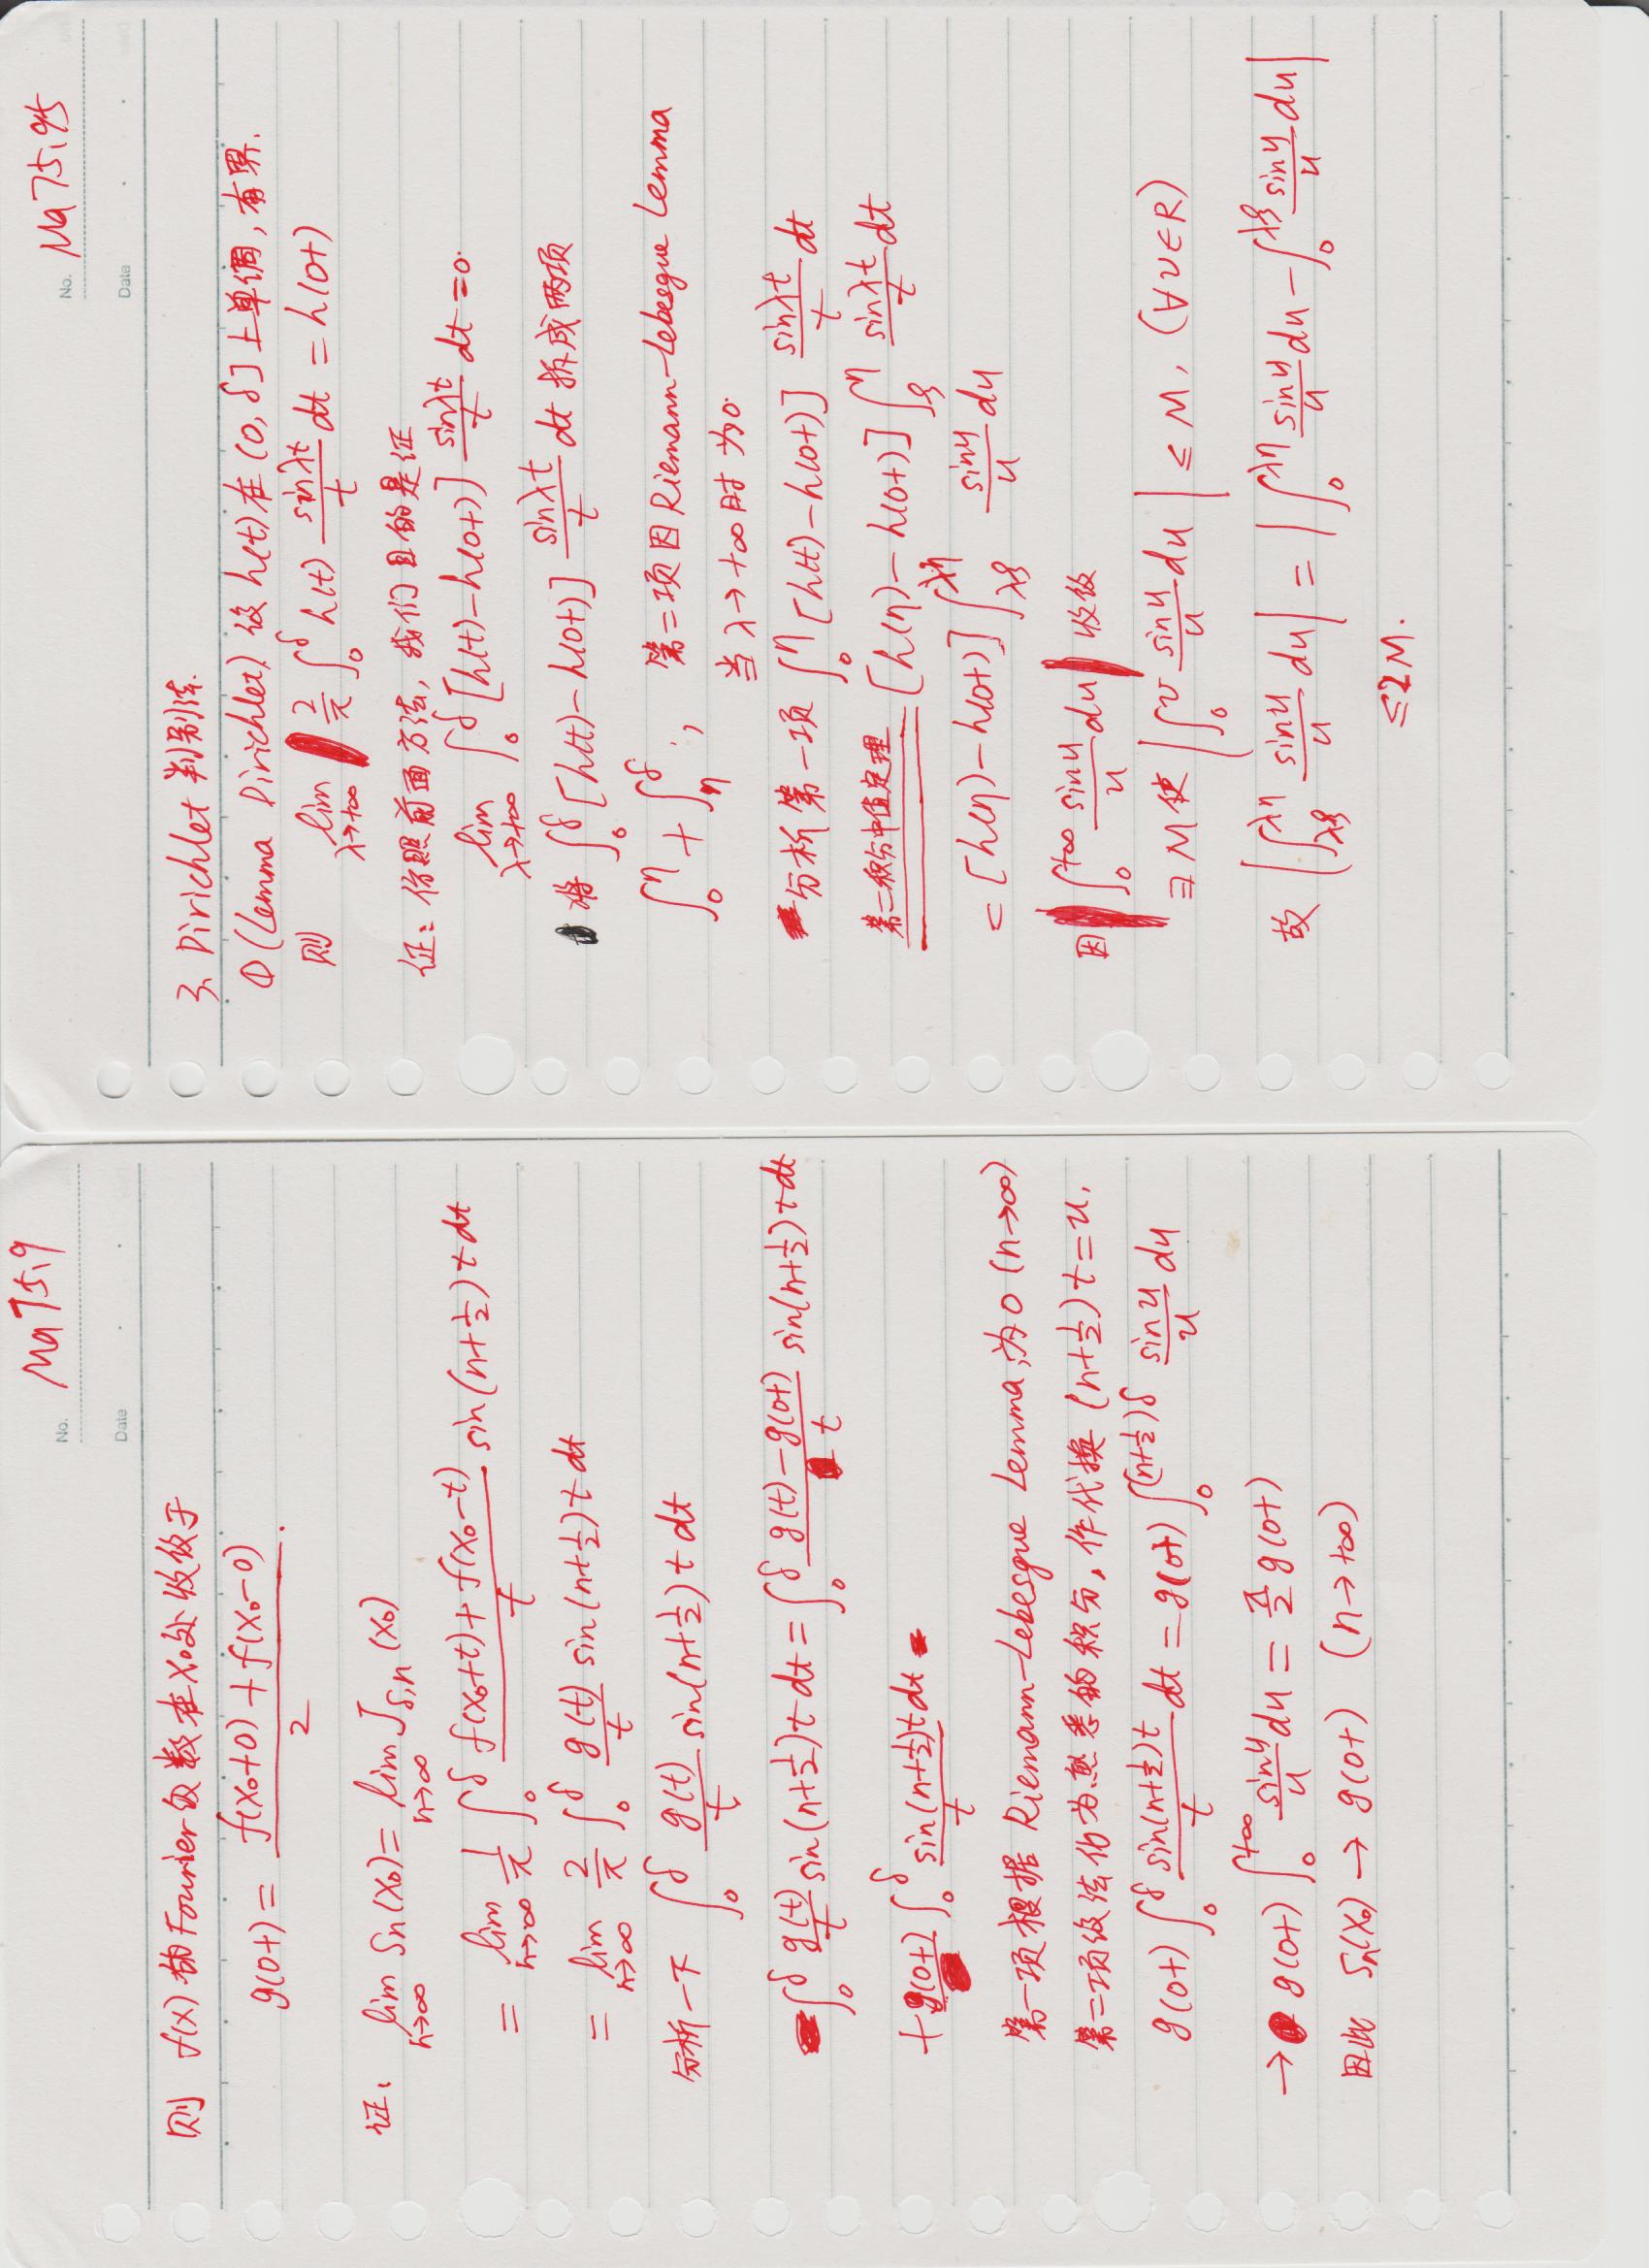 No. Ma75,9
Date
则 f(x) 的Fourier级数在x₀处收敛于
g(0+) = \frac{f(x₀+0)+f(x₀-0)}{2}.
证: \lim_{n→∞} Sₙ(x₀) = \lim_{n→∞} J_{δ,n}(x₀)
= \lim_{n→∞} \frac{1}{π} ∫_0^δ \frac{f(x₀+t)+f(x₀-t)}{t} sin(n+\frac{1}{2})t dt
= \lim_{n→∞} \frac{2}{π} ∫_0^δ \frac{g(t)}{t} sin(n+\frac{1}{2})t dt
分析一下 ∫_0^δ \frac{g(t)}{t} sin(n+\frac{1}{2})t dt
∫_0^δ \frac{g(t)}{t} sin(n+\frac{1}{2})t dt = ∫_0^δ \frac{g(t)-g(0+)}{t} sin(n+\frac{1}{2})t dt
+ g(0+) ∫_0^δ \frac{sin(n+\frac{1}{2})t}{t} dt
第一项根据 Riemann-Lebesgue Lemma,为0 (n→∞)
第二项设法化为熟悉的积分,作代换 (n+\frac{1}{2})t=u,
g(0+) ∫_0^δ \frac{sin(n+\frac{1}{2})t}{t} dt = g(0+) ∫_0^{(n+\frac{1}{2})δ} \frac{sin u}{u} du
→ g(0+) ∫_0^{+∞} \frac{sin u}{u} du = \frac{π}{2} g(0+)
因此 Sₙ(x₀) → g(0+) (n→+∞)
No. Ma75,95
Date
3、Dirichlet 判别法.
① (Lemma Dirichlet) 设 h(t) 在 (0,δ] 上单调,有界.
则 \lim_{λ→+∞} \frac{2}{π} ∫_0^δ h(t) \frac{sinλt}{t} dt = h(0+)
证: 仿照前面方法,我们目的是证
\lim_{λ→+∞} ∫_0^δ [h(t)-h(0+)] \frac{sinλt}{t} dt = 0.
将 ∫_0^δ [h(t)-h(0+)] \frac{sinλt}{t} dt 拆成两项
∫_0^η + ∫_η^δ, 第二项因 Riemann-Lebesgue Lemma
当 λ→+∞ 时 为0.
分析第一项 ∫_0^η [h(t)-h(0+)] \frac{sinλt}{t} dt
第二积分中值定理 [h(η)-h(0+)] ∫_ξ^η \frac{sinλt}{t} dt
= [h(η)-h(0+)] ∫_{λξ}^{λη} \frac{sin u}{u} du
因 ∫_0^{+∞} \frac{sin u}{u} du 收敛
∃ M 使 |∫_0^v \frac{sin u}{u} du| ≤ M, (∀v∈R)
故 |∫_{λξ}^{λη} \frac{sin u}{u} du| = |∫_0^{λη} \frac{sin u}{u} du - ∫_0^{λξ} \frac{sin u}{u} du|
≤2M.